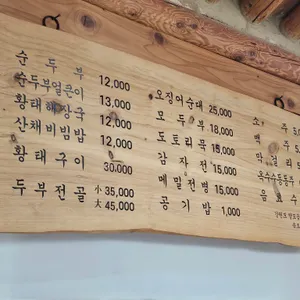 순두부 12,000
순두부얼큰이 13,000
황태해장국 12,000
산채비빔밥 12,000
황태구이 30,000
두부전골 小 35,000
大 45,000
오징어순대 25,000
모두부 18,000
도토리묵 15,000
감자전 15,000
메밀전병 15,000
공기밥 1,000
소주
맥주
막걸리
옥수수동동주
음료수